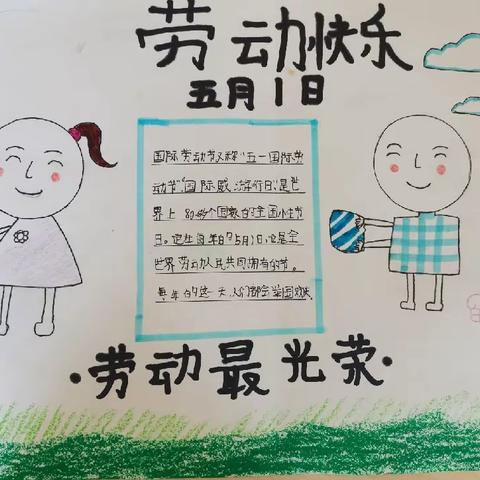 劳动快乐
五月1日
国际劳动节又称"五一国际劳
动节"国际 游行日"是世
界上80多个国家的全国
日。定在每年的5月1日它是全
世界劳动人民共同拥有的节。
每年的这一天人们都会举国欢庆
·劳动最光荣·